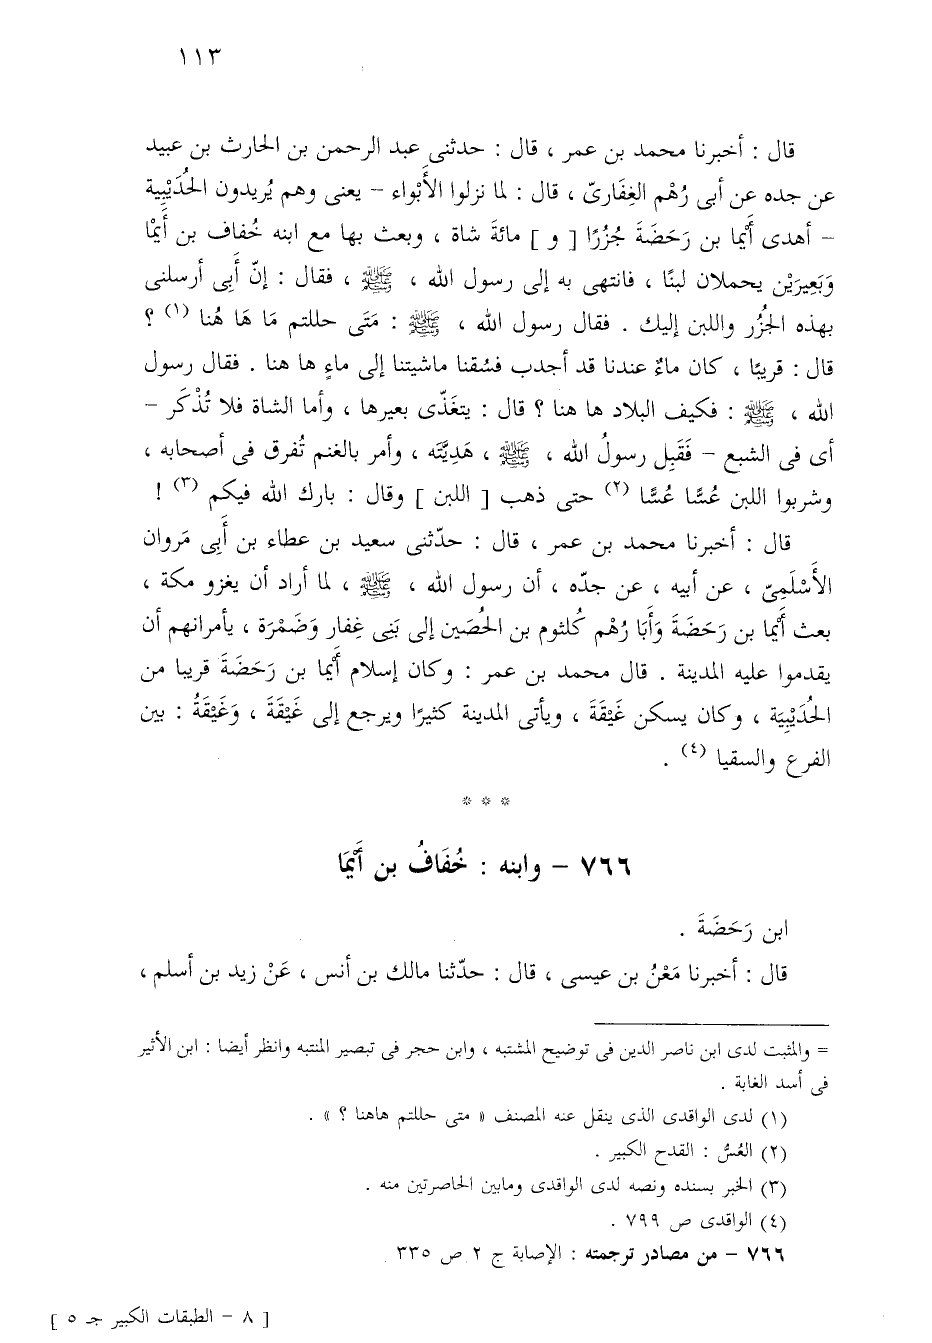 ١١٣
قال : أخبرنا محمد بن عمر ، قال : حدثنى عبد الرحمن بن الحارث بن عبيد
عن جده عن أبى رُهْم الغِفَارىّ ، قال : لما نزلوا الأَبْواء – يعنى وهم يُريدون الحُدَيْبِية
– أهدى أَيْمَا بن رَحَضَةَ جُزُرًا [ و ] مائةَ شاة ، وبعث بها مع ابنه خُفاف بن أَيْمَا
وَبَعِيرَيْن يحملان لبنًا ، فانتهى به إلى رسول الله ، ﷺ ، فقال : إنّ أَبِى أرسلنى
بهذه الجُزُر واللبن إليك . فقال رسول الله ، ﷺ : مَتَى حللتم مَا هَا هُنا (١) ؟
قال : قريبًا ، كان ماءٌ عندنا قد أجدب فسُقنا ماشيتنا إلى ماءٍ ها هنا . فقال رسول
الله ، ﷺ : فكيف البلاد ها هنا ؟ قال : يتغَذّى بعيرها ، وأما الشاة فلا تُذْكَر –
أى فى الشبع – فَقَبِل رسولُ الله ، ﷺ ، هَدِيَّتَه ، وأمر بالغنم تُفرق فى أصحابه ،
وشربوا اللبن عُسًّا عُسًّا (٢) حتى ذهب [ اللبن ] وقال : بارك الله فيكم (٣) !
قال : أخبرنا محمد بن عمر ، قال : حدّثنى سعيد بن عطاء بن أَبِى مَروان
الأَسْلَمِىّ ، عن أبيه ، عن جدّه ، أن رسول الله ، ﷺ ، لما أراد أن يغزو مكة ،
بعث أَيْمَا بن رَحَضَةَ وَأَبَا رُهْم كُلثوم بن الحُصَين إلى بَنِى غِفار وَضَمْرَة ، يأمرانهم أن
يقدموا عليه المدينة . قال محمد بن عمر : وكان إسلام أَيْمَا بن رَحَضَةَ قريبا من
الحُدَيْبِيَة ، وكان يسكن غَيْقَةَ ، ويأتى المدينة كثيرًا ويرجع إلى غَيْقَةَ ، وَغَيْقَةُ : بين
الفرع والسقيا (٤) .
* * *
٧٦٦ – وابنه : خُفَافُ بن أَيْمَا
ابن رَحَضَةَ .
قال : أخبرنا مَعْنُ بن عيسى ، قال : حدّثنا مالك بن أنس ، عَنْ زيد بن أسلم ،
= والمثبت لدى ابن ناصر الدين فى توضيح المشتبه ، وابن حجر فى تبصير المنتبه وانظر أيضا : ابن الأثير
فى أسد الغابة .
(١) لدى الواقدى الذى ينقل عنه المصنف « متى حللتم هاهنا ؟ » .
(٢) العُسُّ : القدح الكبير .
(٣) الخبر بسنده ونصه لدى الواقدى ومابين الحاصرتين منه .
(٤) الواقدى ص ٧٩٩ .
٧٦٦ – من مصادر ترجمته : الإصابة ج ٢ ص ٣٣٥
[ ٨ – الطبقات الكبير جـ ٥ ]